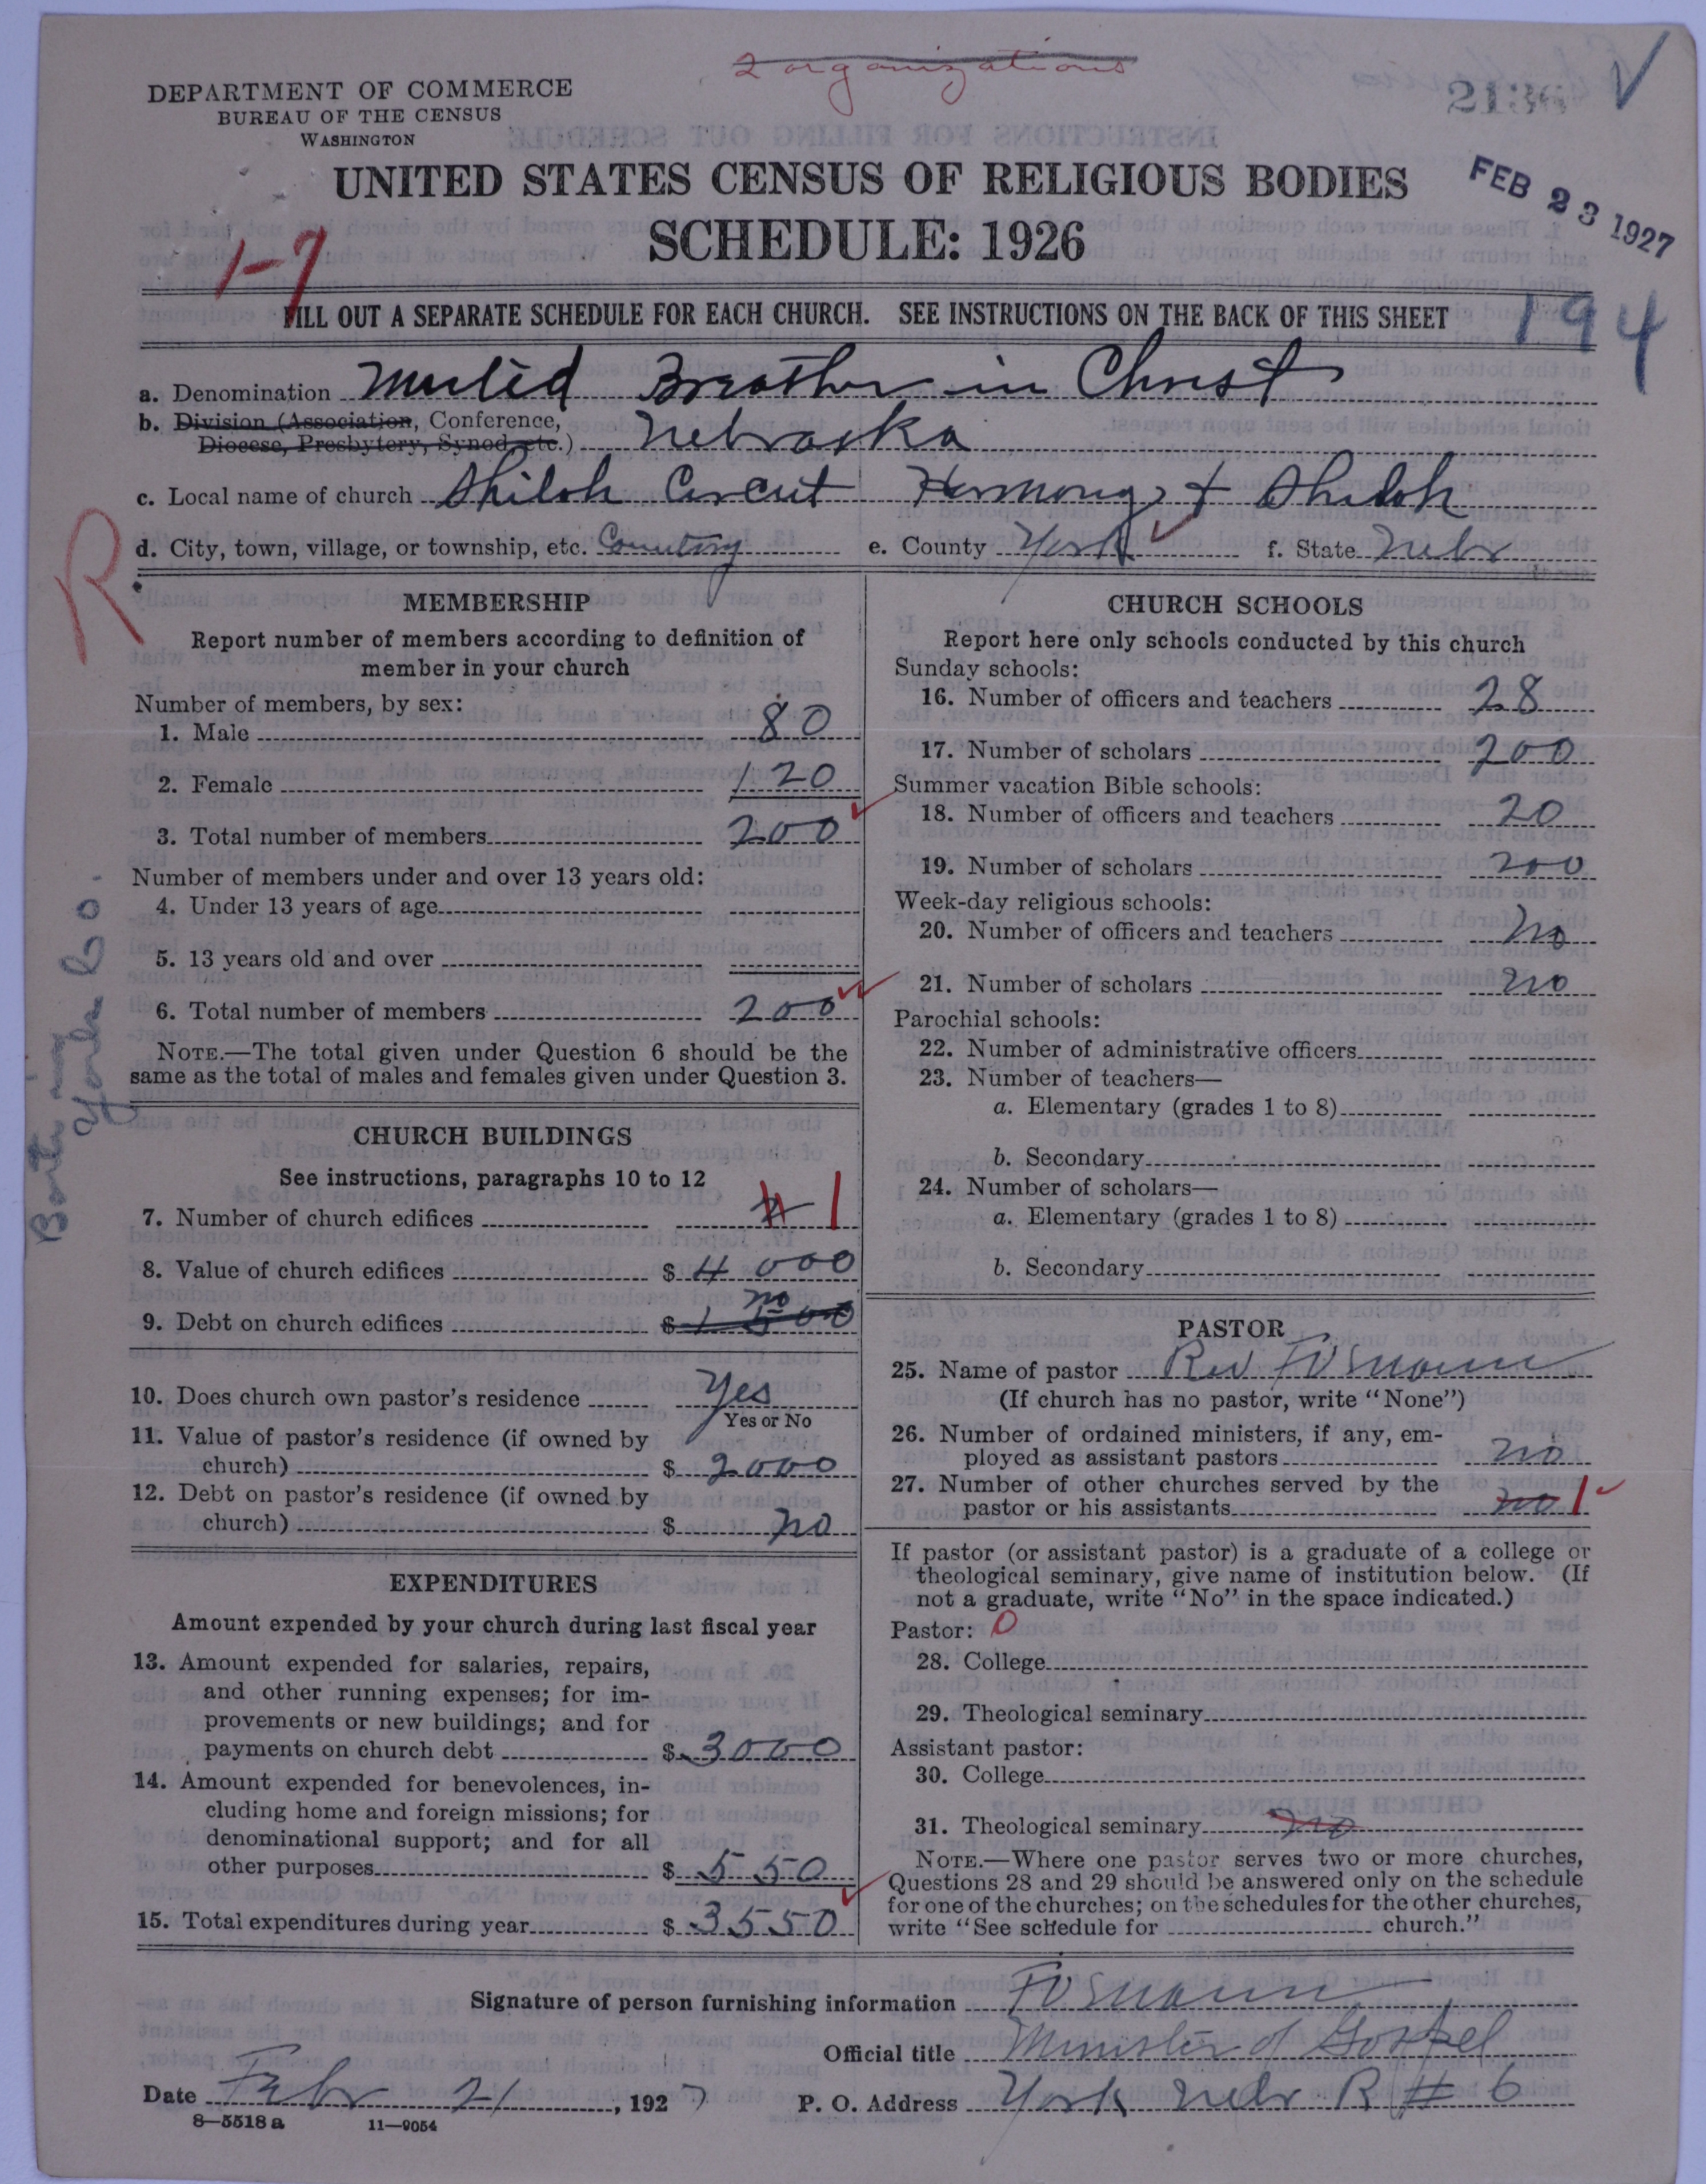 2 organizations
DEPARTMENT OF COMMERCE
BUREAU OF THE CENSUS
WASHINGTON
2136
UNITED STATES CENSUS OF RELIGIOUS BODIES
SCHEDULE: 1926
FEB 23 1927
1-7
FILL OUT A SEPARATE SCHEDULE FOR EACH CHURCH. SEE INSTRUCTIONS ON THE BACK OF THIS SHEET
194
a. Denomination Brother in Christ
b. Division (Association, Conference, Diocese, Presbytery, Synod etc.) Nebraska
c. Local name of church Shiloh Harmony & Shiloh
d. City, town, village, or township, etc. Country e. County York f. State Nebr
R
Both in York Co.
MEMBERSHIP
Report number of members according to definition of
member in your church
Number of members, by sex:
1. Male 80
2. Female 120
3. Total number of members 200
Number of members under and over 13 years old:
4. Under 13 years of age
5. 13 years old and over
6. Total number of members 200
NOTE.—The total given under Question 6 should be the
same as the total of males and females given under Question 3.
CHURCH BUILDINGS
See instructions, paragraphs 10 to 12
7. Number of church edifices 1
8. Value of church edifices $ 4000
9. Debt on church edifices $ 1500 no
10. Does church own pastor's residence Yes
Yes or No
11. Value of pastor's residence (if owned by
church) $ 2000
12. Debt on pastor's residence (if owned by
church) $ no
EXPENDITURES
Amount expended by your church during last fiscal year
13. Amount expended for salaries, repairs,
and other running expenses; for im-
provements or new buildings; and for
payments on church debt $ 3000
14. Amount expended for benevolences, in-
cluding home and foreign missions; for
denominational support; and for all
other purposes $ 550
15. Total expenditures during year $ 3550
CHURCH SCHOOLS
Report here only schools conducted by this church
Sunday schools:
16. Number of officers and teachers 28
17. Number of scholars 200
Summer vacation Bible schools:
18. Number of officers and teachers 20
19. Number of scholars 200
Week-day religious schools:
20. Number of officers and teachers no
21. Number of scholars no
Parochial schools:
22. Number of administrative officers
23. Number of teachers—
a. Elementary (grades 1 to 8)
b. Secondary
24. Number of scholars—
a. Elementary (grades 1 to 8)
b. Secondary
PASTOR
25. Name of pastor Rev
(If church has no pastor, write "None")
26. Number of ordained ministers, if any, em-
ployed as assistant pastors no
27. Number of other churches served by the
pastor or his assistants no 1
If pastor (or assistant pastor) is a graduate of a college or
theological seminary, give name of institution below. (If
not a graduate, write "No" in the space indicated.)
Pastor: 0
28. College
29. Theological seminary
Assistant pastor:
30. College
31. Theological seminary no
NOTE.—Where one pastor serves two or more churches,
Questions 28 and 29 should be answered only on the schedule
for one of the churches; on the schedules for the other churches,
write "See schedule for church."
Signature of person furnishing information
Official title Minister of Gospel
Date Febr 21, 1927 P. O. Address York Nebr R # 6
8—5518 a 11—9054